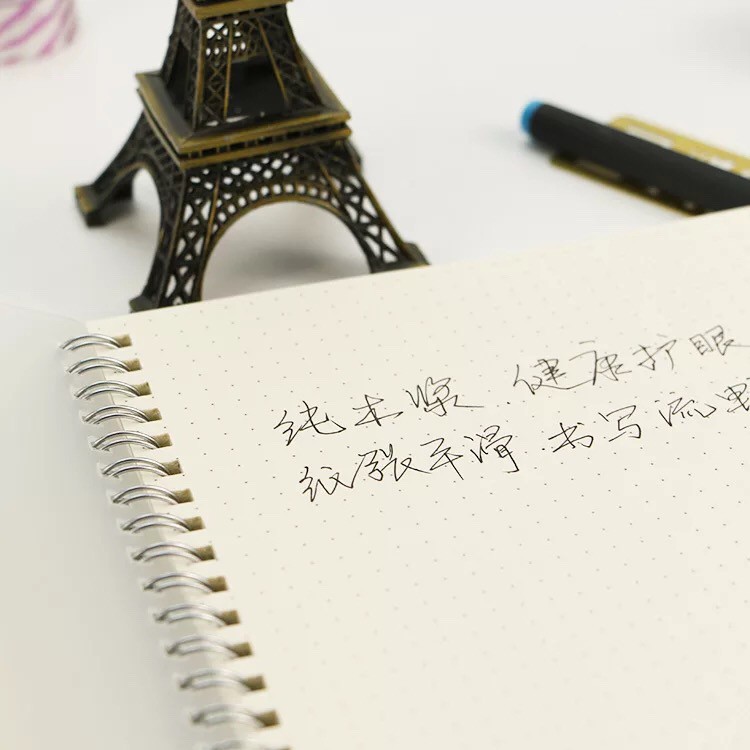 纯木浆.健康护眼
纸张平滑.书写流畅